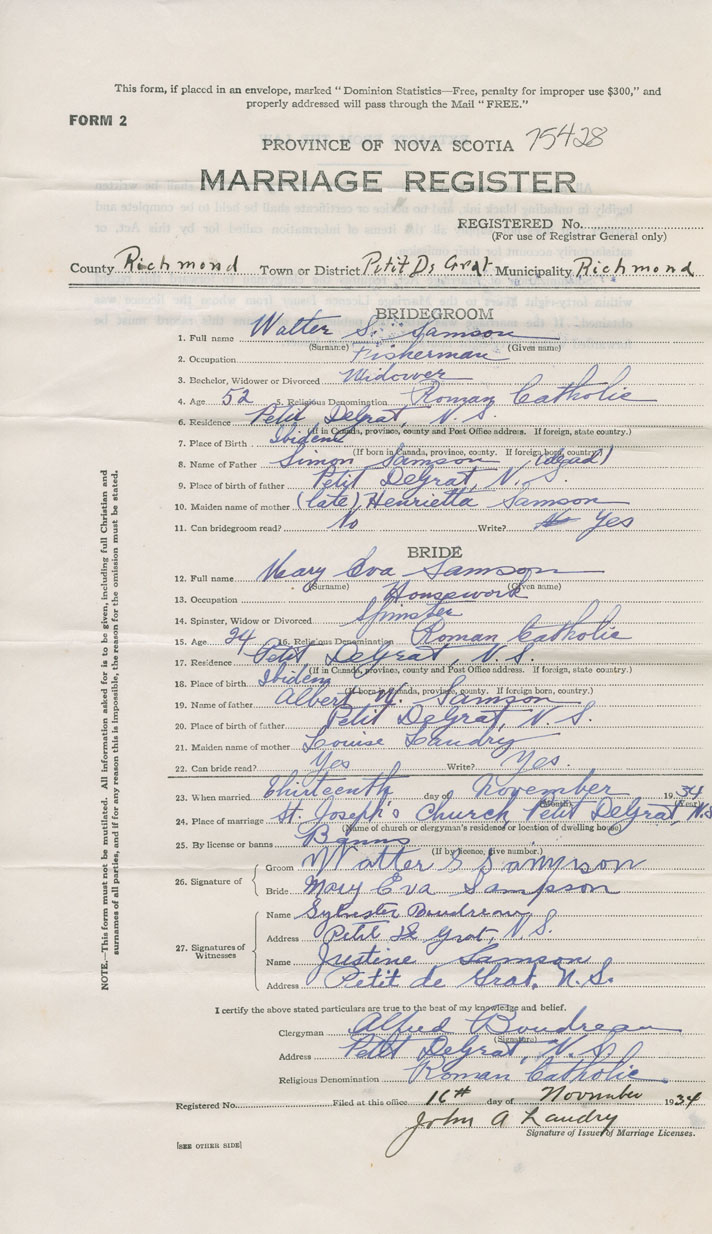 This form, if placed in an envelope, marked "Dominion Statistics—Free, penalty for improper use $300," and
properly addressed will pass through the Mail "FREE."
FORM 2
PROVINCE OF NOVA SCOTIA 75428
MARRIAGE REGISTER
REGISTERED No.
(For use of Registrar General only)
County Richmond Town or District Petit De Grat Municipality Richmond
BRIDEGROOM
1. Full name Walter S. Samson
(Surname) (Given name)
2. Occupation Fisherman
3. Bachelor, Widower or Divorced Widower
4. Age 52 5. Religious Denomination Roman Catholic
6. Residence Petit DeGrat, N. S.
(If in Canada, province, county and Post Office address. If foreign, state country.)
7. Place of Birth Ibidem
(If born in Canada, province, county. If foreign born, country.)
8. Name of Father Simon Samson (dead)
9. Place of birth of father Petit DeGrat, N. S.
10. Maiden name of mother (late) Henrietta Samson
11. Can bridegroom read? No Write? Yes
BRIDE
12. Full name Mary Eva Samson
(Surname) (Given name)
13. Occupation Housework
14. Spinster, Widow or Divorced Spinster
15. Age 24 16. Religious Denomination Roman Catholic
17. Residence Petit DeGrat, N. S.
(If in Canada, province, county and Post Office address. If foreign, state country.)
18. Place of birth Ibidem
(If born in Canada, province, county. If foreign born, country.)
19. Name of father Albert Samson
20. Place of birth of father Petit DeGrat, N. S.
21. Maiden name of mother Louise Landry
22. Can bride read? Yes Write? Yes.
23. When married Thirteenth day of November 1934
(Month) (Year)
24. Place of marriage St. Joseph's Church Petit DeGrat, N.S
(Name of church or clergyman's residence or location of dwelling house)
25. By license or banns Banns
(If by licence, give number.)
26. Signature of Groom Walter S Sampson
Bride Mary Eva Sampson
27. Signatures of Witnesses
Name Sylvester Boudreau
Address Petit de Grat, N S.
Name Justine Samson
Address Petit de Grat, N. S.
I certify the above stated particulars are true to the best of my knowledge and belief.
Clergyman Alfred Boudreau
(Signature)
Address Petit DeGrat, N. S
Religious Denomination Roman Catholic
Registered No. Filed at this office 16th day of November 1934
John A Landry
Signature of Issuer of Marriage Licenses.
[SEE OTHER SIDE]
NOTE.—This form must not be mutilated. All information asked for is to be given, including full Christian and
surnames of all parties, and if for any reason this is impossible, the reason for the omission must be stated.